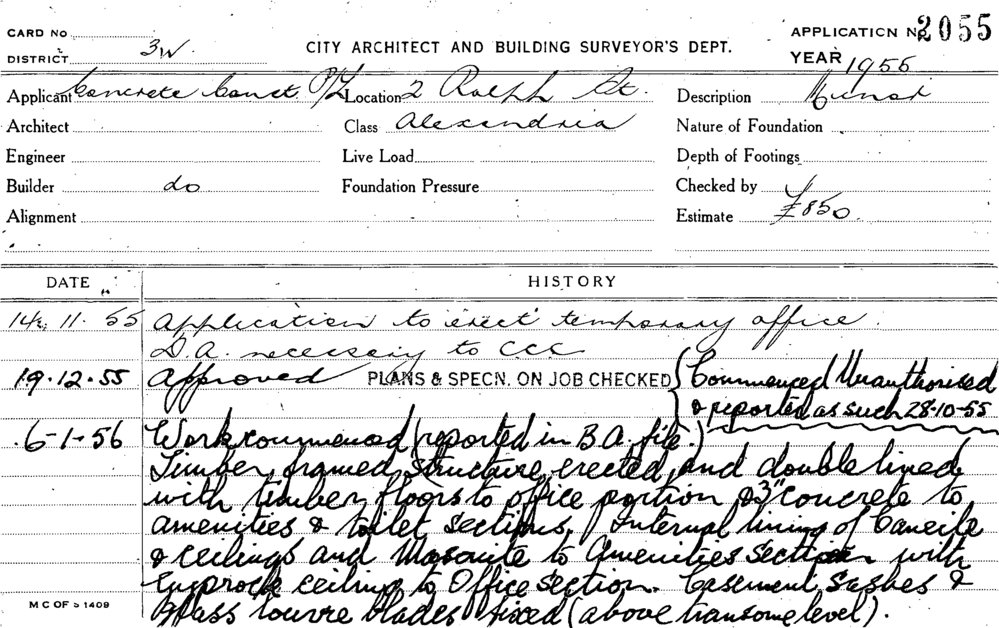 CARD No
DISTRICT 3W.
CITY ARCHITECT AND BUILDING SURVEYOR'S DEPT.
APPLICATION No 2055
YEAR 1955
Applicant Concrete Const. P/L Location 2 Ralph St. Description Minor
Architect Class Alexandria Nature of Foundation
Engineer Live Load Depth of Footings
Builder do Foundation Pressure Checked by
Alignment Estimate £850
DATE HISTORY
14. 11. 55 Application to erect temporary office.
D.A. necessary to CCC
19.12.55 Approved PLANS & SPECN. ON JOB CHECKED { Commenced Unauthorised
& reported as such 28-10-55
6-1-56 Work commenced (reported in B.A. file.)
Timber framed structure erected, and double lined
with timber floors to office portion & 3" concrete to
amenities & toilet sections. Internal lining of Caneite
& ceilings and Masonite to Amenities section with
Gyprock ceiling to Office section. Casement sashes &
Glass louvre blades fixed (above transome level).
M C OF S 1409